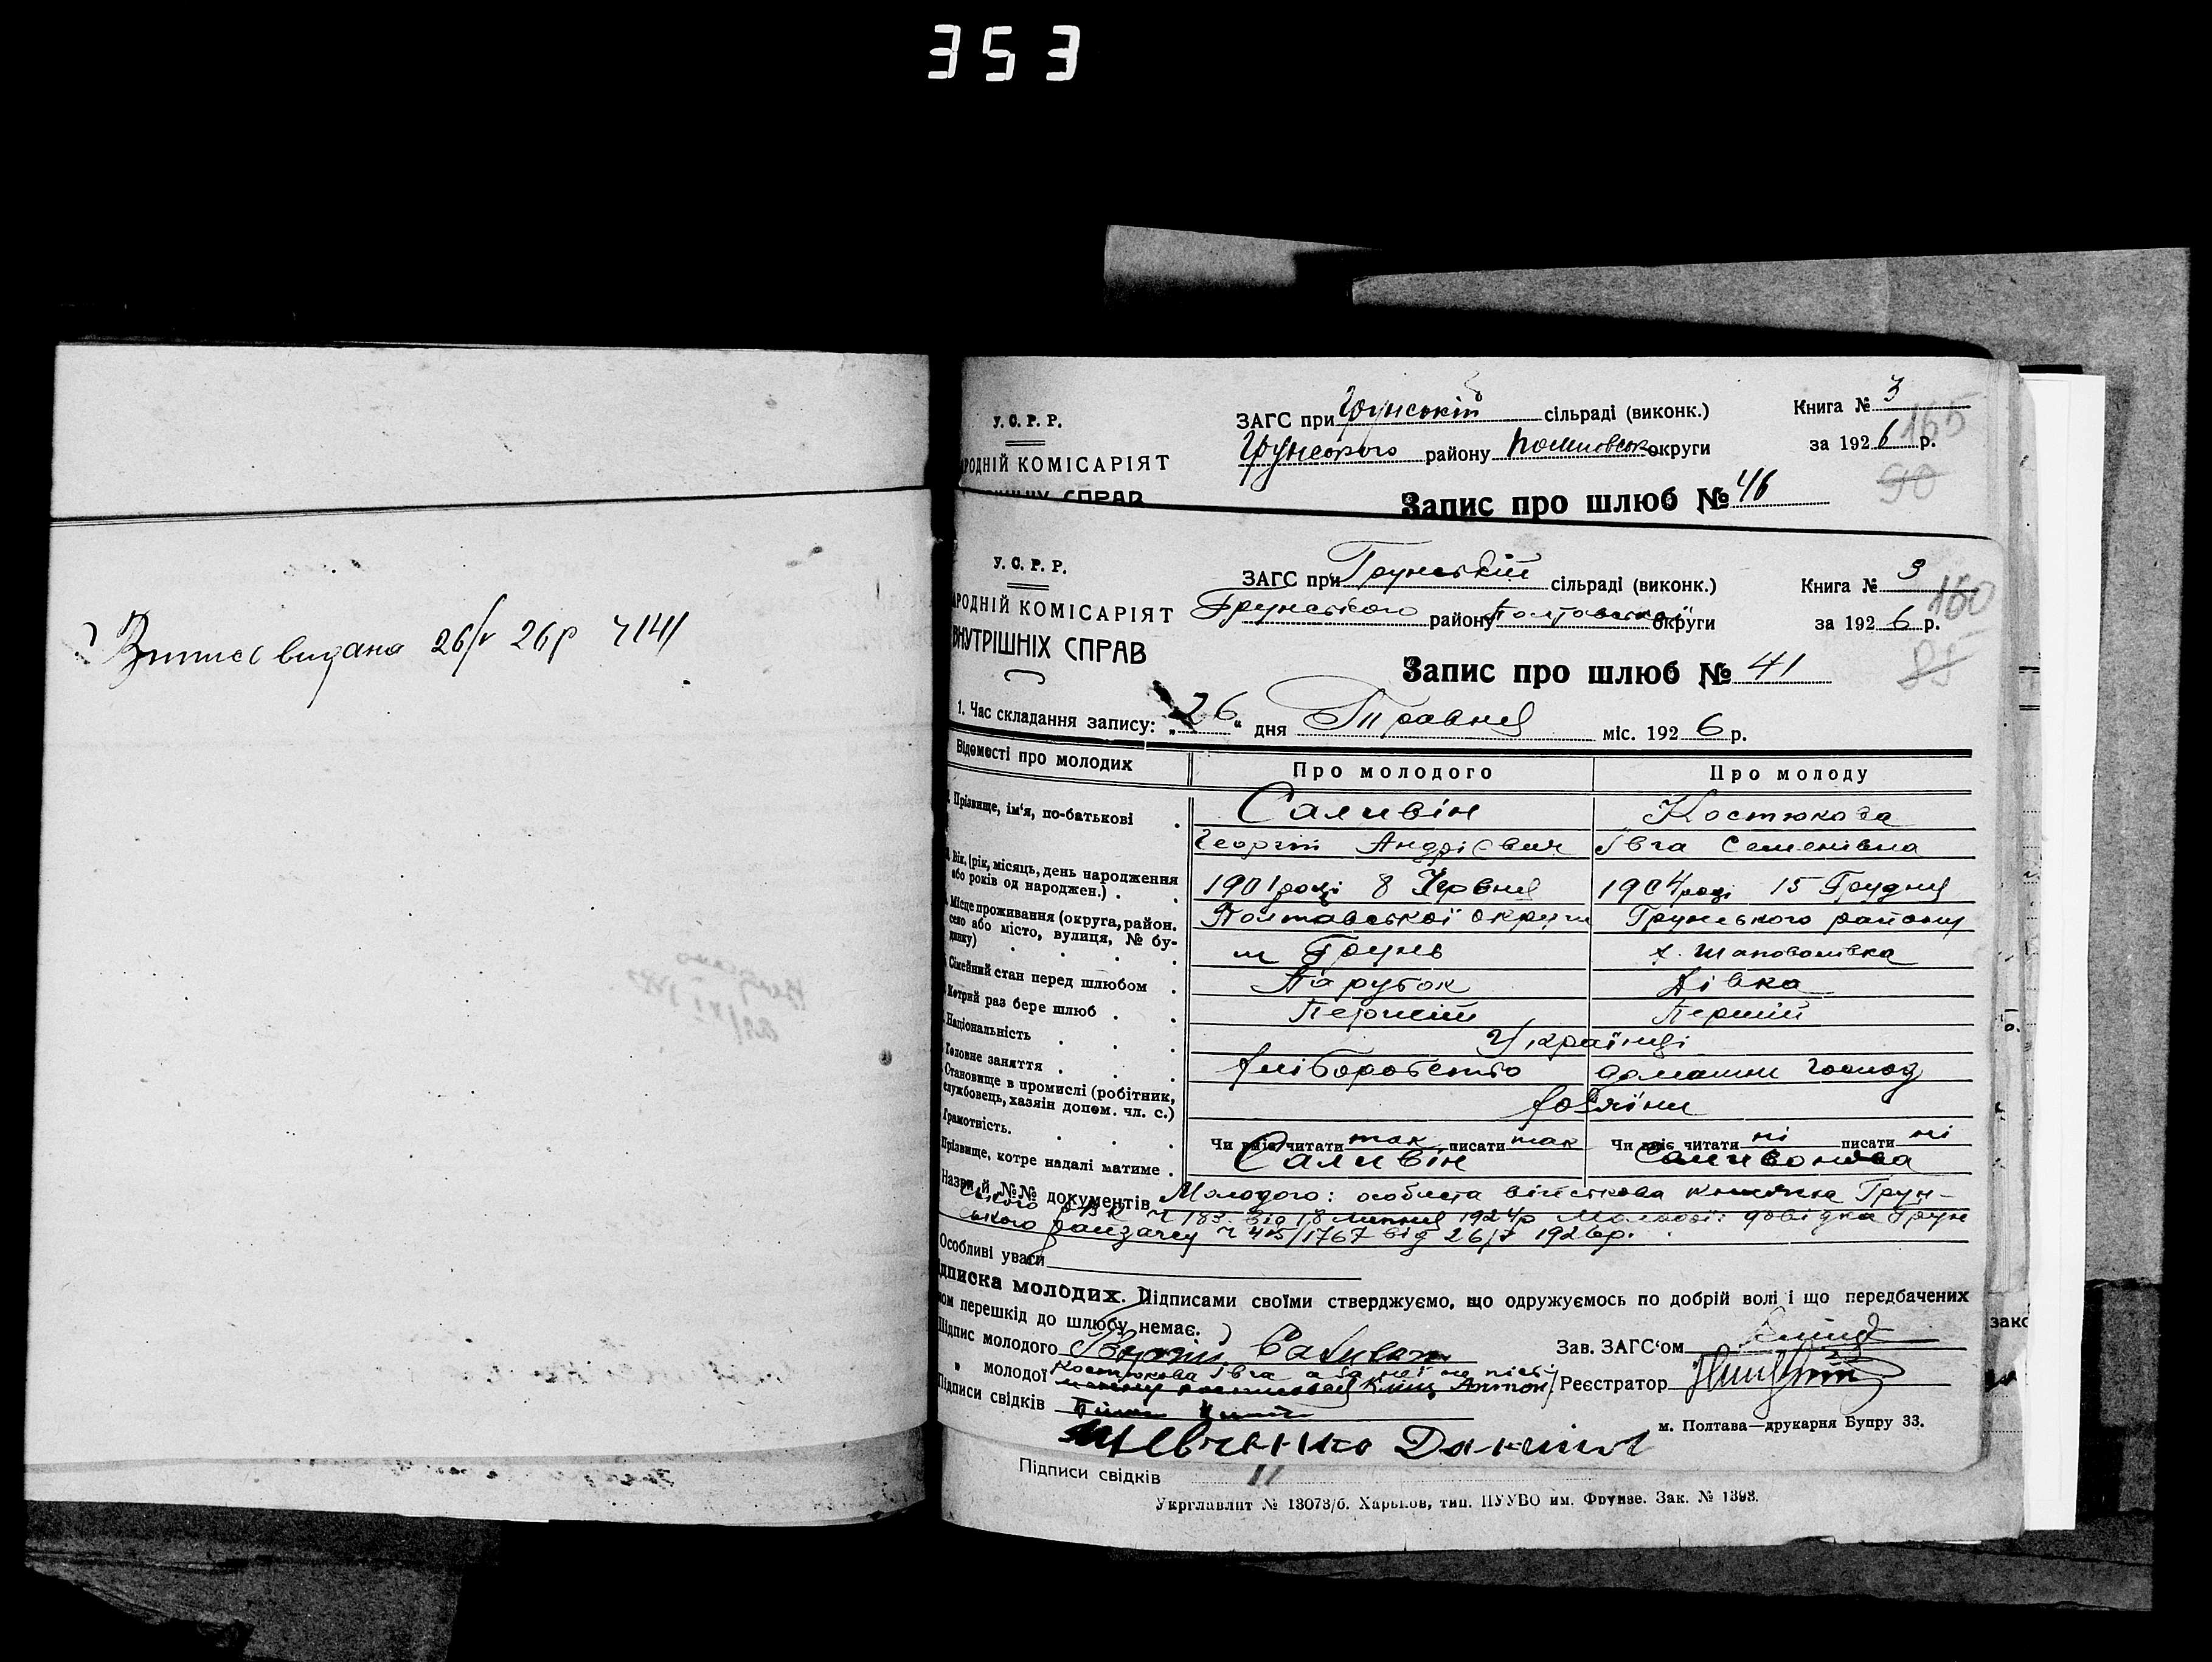 353
Выпись видана 26/V 26р ч 141
У. С. Р. Р.
РОДНІЙ КОМІСАРІЯТ
СПРАВ
ЗАГС при Грунській сільраді (виконк.)
Грунського району Полтавськ округи
Книга № 3
за 1926 р.
165
90
Запис про шлюб № 46
У. С. Р. Р.
АРОДНІЙ КОМІСАРІЯТ
ВНУТРІШНІХ СПРАВ
ЗАГС при Грунській сільраді (виконк.)
Грунського району Полтавської округи
Книга № 3
за 1926 р.
160
85
Запис про шлюб № 41
1. Час складання запису: „26“ дня Травня міс. 1926 р.
Відомості про молодих Про молодого Про молоду
Прізвище, ім'я, по-батькові Саливін Костюкова
Георгій Андрієвич Івга Семенівна
Вік, (рік, місяць, день народження або років од народжен.) 1901 році 8 Червня 1904 році 15 Грудня
Місце проживання (округа, район, село або місто, вулиця, № будинку) Полтавської округи Грунського району
м Грунь х. Шаповалівка
Сімейний стан перед шлюбом Парубок Дівка
Котрий раз бере шлюб Перший Перший
Національність Українці
Головне заняття хліборобство домашнє господ
Становище в промислі (робітник, службовець, хазяін допом. чл. с.) хазяїни
Грамотність. Чи вміє читати так писати так Чи вміє читати ні писати ні
Прізвище, котре надалі матиме Саливін Саливонова
Назви й №№ документів Молодого: особиста військова книжка Грун-
ського РВК ч 183 від 18 липня 1924р Молодої: довідка Грун
ського райзагсу ч 415/1767 від 26/V 1926р.
Особливі уваги
ідписка молодих. Підписами своїми стверджуємо, що одружуємось по добрій волі і що передбачених
ом перешкід до шлюбу немає.
Підпис молодого Саливон Зав. ЗАГС'ом
„ молодої Костюкова Івга а за неї не пись
Кищ Антон Реєстратор
Підписи свідків
Шевченко Данило
м. Полтава—друкарня Бупру 33.
Підписи свідків
Укрглавліт № 13073/б. Харьков, тип. ПУУВО им. Фрунзе. Зак. № 1393.